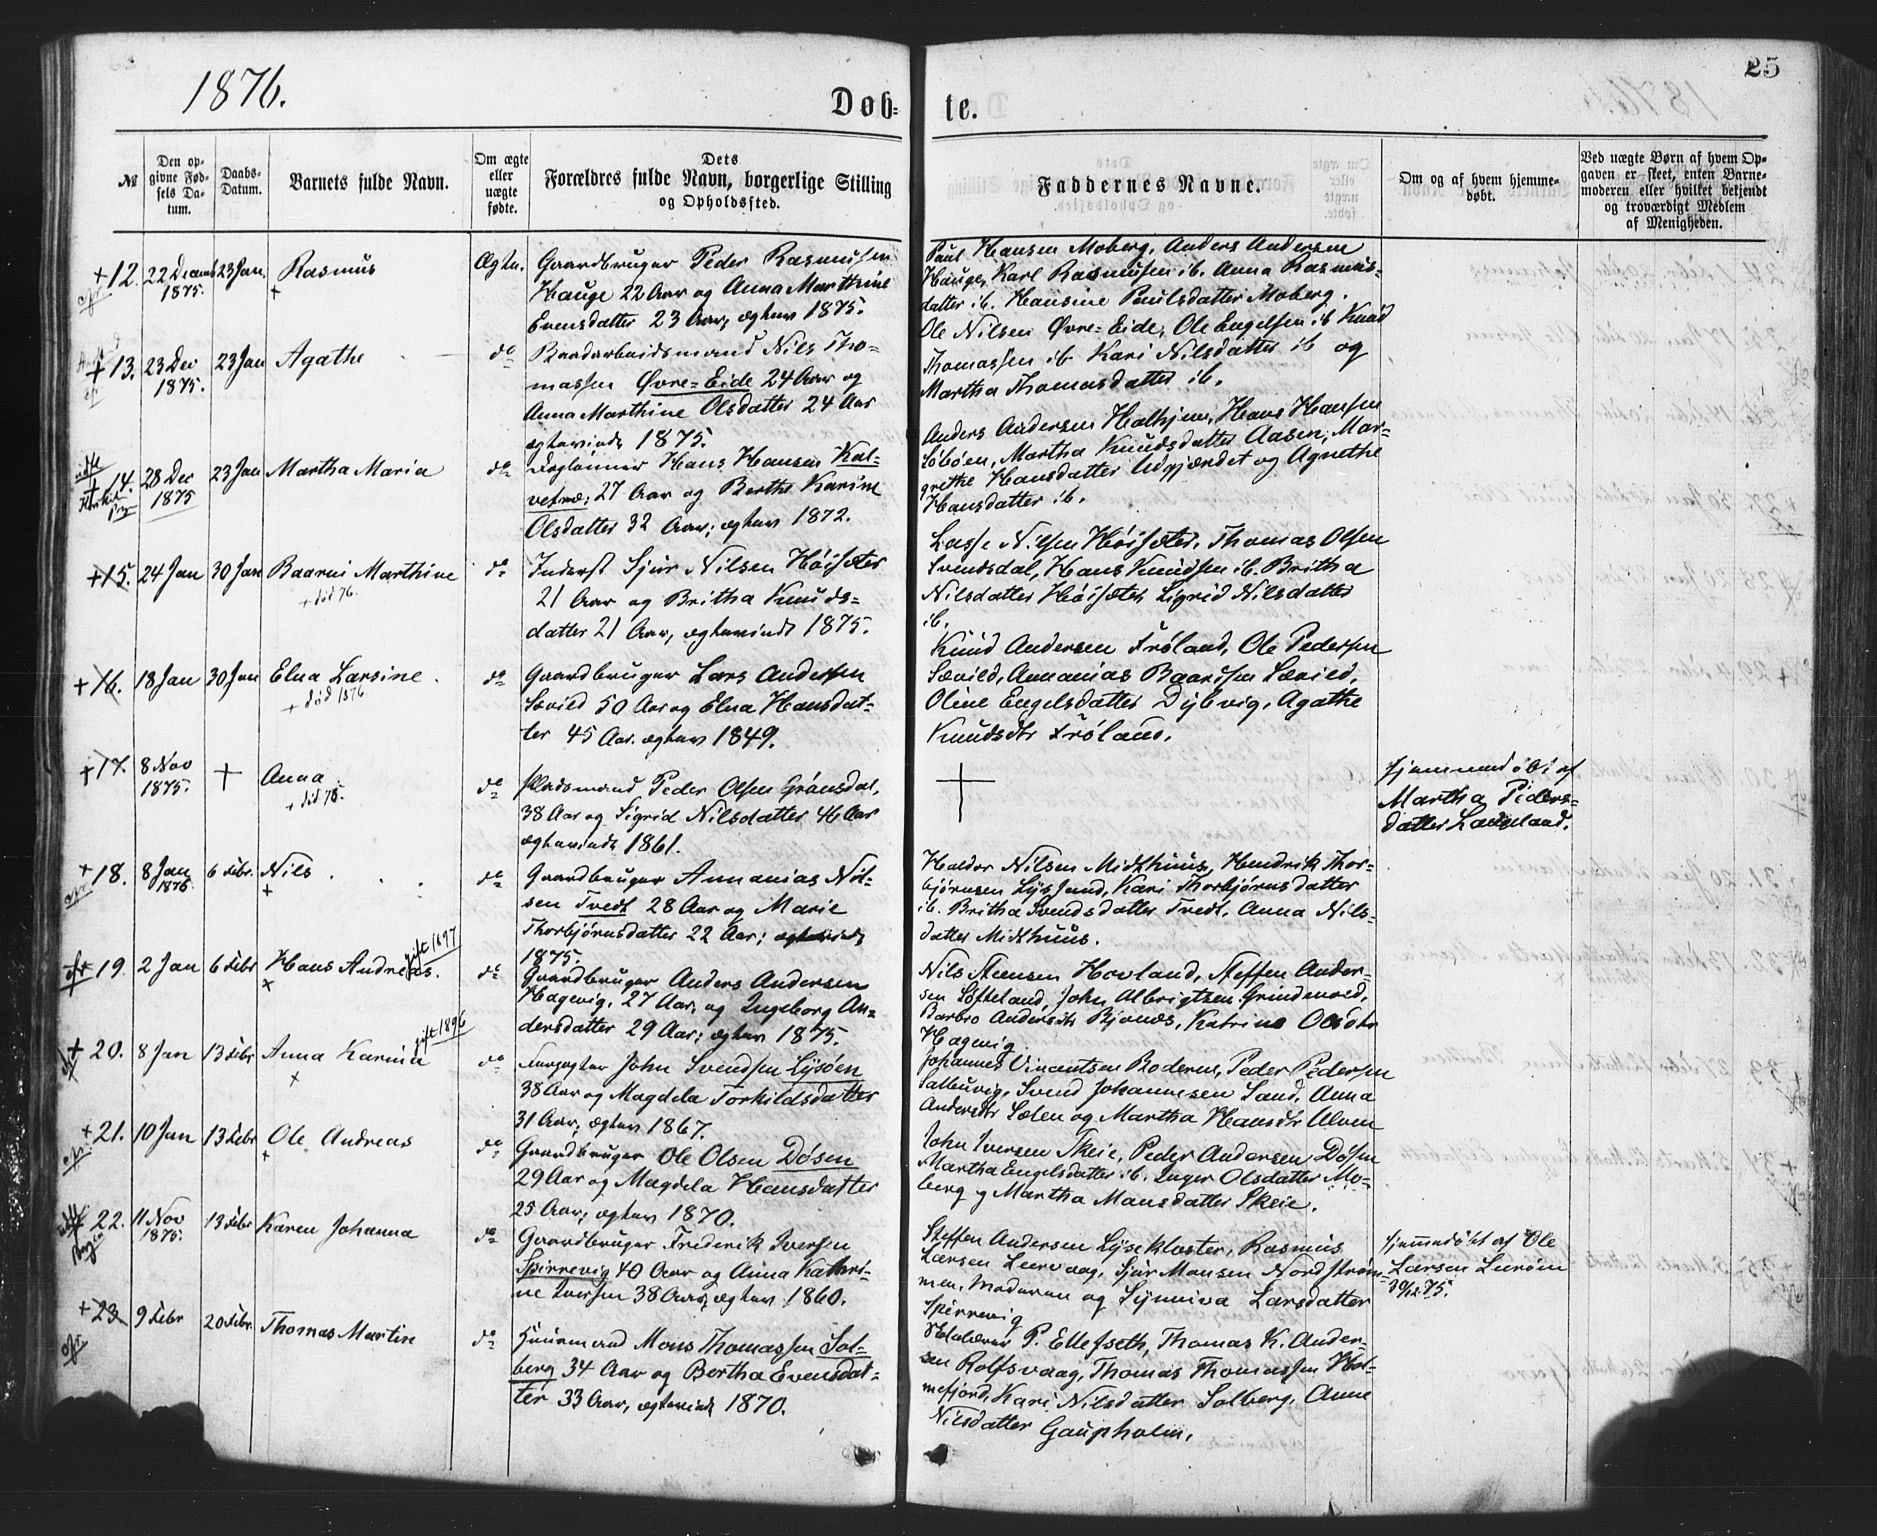 1876.
Døb-
te.
25
№
Den op-
givne Fød-
sels Da-
tum.
Daabs-
Datum.
Barnets fulde Navn.
Om ægte
eller
uægte
fødte.
Dets
Forældres fulde Navn, borgerlige Stilling
og Opholdssted.
Faddernes Navne.
Om og af hvem hjemme-
døbt.
Ved uægte Børn af hvem Op-
gaven er skeet, enten Barne-
moderen eller hvilket bekjendt
og troværdigt Medlem
af Menigheden.
+ 12. 22 Decemb 1875. 23 Jan. Rasmus
+
Ægte.
Gaardbruger Peder Rasmussen
Hauge 22 Aar og Anna Marthine
Evensdatter 23 Aar; ægtev 1875.
Paul Hansen Moberg, Anders Andersen
Hauge, Karl Rasmussen ib. Anna Rasmus-
datter ib. Hansine Paulsdatter Moberg.
+ 13. 23 Dec 1875. 23 Jan Agathe
do
Baadarbeidsmand Nils Tho-
massen Øvre-Eide 24 Aar og
Anna Marthine Olsdatter 24 Aar
ægteviede 1875.
Ole Nilsen Øvre-Eide, Ole Engelsen ib Knud
Thomassen ib Kari Nilsdatter ib og
Martha Thomasdatter ib.
14. 28 Dec 1875 23 Jan Martha Maria
do
Dagleiner Hans Hansen Kal-
vetræ; 27 Aar og Berthe Karine
Olsdatter 32 Aar; ægtev 1872.
Anders Andersen Halhjem, Hans Hansen
Søbøen, Martha Knudsdatter Aasen, Mar-
grethe Hansdatter Udgjærdet og Agnethe
Hansdatter ib.
+15. 24 Jan 30 Jan Baarni Marthine
+ død 76.
do
Inderst Sjur Nilsen Høisæter
21 Aar og Britha Knuds-
datter 21 Aar, ægteviede 1875.
Lasse Nilsen Høisæter, Thomas Olsen
Svendsdal, Hans Knudsen ib. Britha
Nilsdatter Høisæter, Sigrid Nilsdatter
ib.
+16. 18 Jan 30 Jan Elna Larsine.
+ død 1876
do
Gaardbruger Lars Andersen
Sævild 50 Aar og Elna Hansdat-
ter 45 Aar. ægtev 1849.
Knud Andersen Frøland, Ole Pedersen
Sævild, Annanias Baardsen Sævild,
Oline Engelsdatter Dybvig, Agathe
Knudsdtr Frøland.
+17. 8 Nov 1875. + Anna
+ død 75.
do
Pladsmand Peder Olsen Grønsdal,
38 Aar og Sigrid Nilsdatter 46 Aar
ægteviede 1861.
+
Hjemmedøbt af
Martha Peders-
datter Langeland.
+ 18. 8 Jan 1876. 6 Febr. Nils
+
do
Gaardbruger Annanias Nil-
sen Tvedt 28 Aar og Marie
Thorbjørnsdatter 22 Aar; ægteviede
1875.
Haldor Nilsen Midthuus, Hendrik Thor-
bjørnsen Lyssand, Kari Thorbjørnsdatter
ib. Britha Svendsdatter Tvedt, Anna Nils-
datter Midthuus.
19. 2 Jan 6 Febr Hans Andreas.
gift 1897
+
do
Gaardbruger Anders Andersen
Hagevig, 27 Aar, og Ingeborg An-
dersdatter 29 Aar; ægtev 1875.
Nils Steensen Hovland, Steffen Ander-
sen Søfteland, John Albrigtsen Grindevold,
Barbro Andersdtr Bjønes, Katrine Olsdtr
Hagevig.
+ 20. 8 Jan 13 Febr Anna Karina
gift 1896
+
do
John Svendsen Lysøen
38 Aar og Magdela Torkildsdatter
31 Aar; ægtev 1867.
Johannes Vincentsen Roderne, Peder Pedersen
Salbuvig, Svend Johannesen Sand, Anna
Andersdtr Sælen og Martha Hansdtr Alven
+ 21. 10 Jan 13 Febr Ole Andreas
+
do
Gaardbruger Ole Olsen Døsen
29 Aar og Magdela Hansdatter
25 Aar; ægtev 1870.
John Iversen Skeie, Peder Andersen Døsen
Martha Engelsdatter ib. Inger Olsdatter Mo-
berg og Martha Mansdatter Skeie.
22. 11 Nov 1875. 13 Febr Karen Johanna
do
Gaardbruger Frederik Iversen
Spirrevig 40 Aar og Anna Kathri-
ne Iversen 38 Aar, ægtev 1860.
Steffen Andersen Lysekloster, Rasmus
Larsen Leervaag, Sjur Monsen Nordstrøm-
men, Moderen og Synneva Larsdatter
Spirrevig
Hjemmedøbt af Ole
Larsen Leirøen
+ 23. 9 Febr 20 Febr. Thomas Martin
do
Huusmand Mons Thomassen Sol-
berg 34 Aar og Bertha Evensdat-
ter 33 Aar, ægteviede 1870.
P. Ellefseth, Thomas K. Ander-
sen Rolfsvaag, Thomas Thomassen Hol-
mefjord, Kari Nilsdatter Solberg, Anne
Nilsdatter Gaupholm.